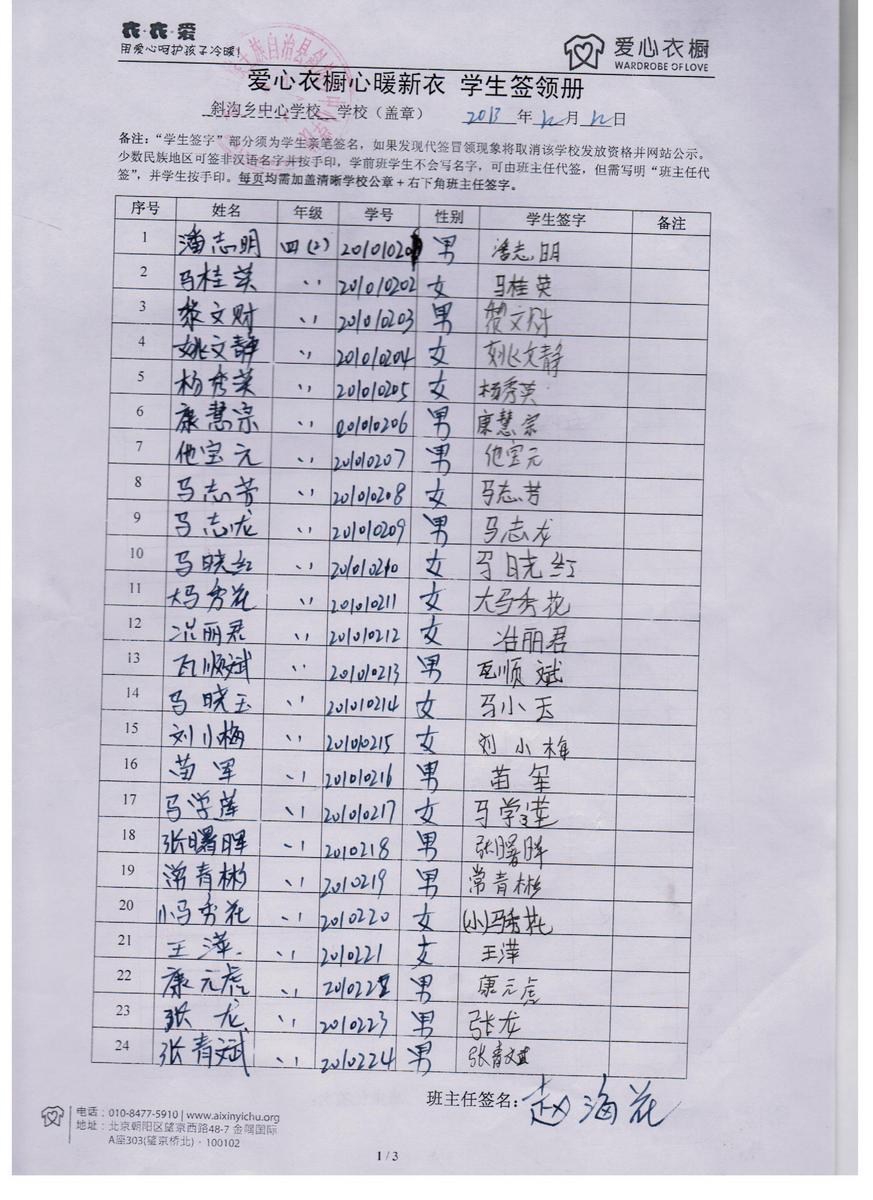 衣·衣·爱
用爱心呵护孩子冷暖!
爱心衣橱
WARDROBE OF LOVE
族自治县斜
爱心衣橱心暖新衣 学生签领册
斜沟乡中心学校 学校（盖章） 2013 年 12 月 12 日
备注：“学生签字”部分须为学生亲笔签名，如果发现代签冒领现象将取消该学校发放资格并网站公示。
少数民族地区可签非汉语名字并按手印，学前班学生不会写名字，可由班主任代签，但需写明“班主任代
签”，并学生按手印。每页均需加盖清晰学校公章+右下角班主任签字。
序号 姓名 年级 学号 性别 学生签字 备注
1 潘志明 四(2) 20101020 男 潘志明
2 马桂英 〃 201010202 女 马桂英
3 黎文财 〃 201010203 男 黎文财
4 姚文静 〃 201010204 女 姚文静
5 杨秀英 〃 201010205 女 杨秀英
6 康慧宗 〃 201010206 男 康慧宗
7 他宝元 〃 201010207 男 他宝元
8 马志芳 〃 201010208 女 马志芳
9 马志龙 〃 201010209 男 马志龙
10 马晓红 〃 201010210 女 马晓红
11 大马秀花 〃 201010211 女 大马秀花
12 丽君 〃 201010212 女 丽君
13 瓦顺斌 〃 201010213 男 瓦顺斌
14 马晓玉 〃 201010214 女 马小玉
15 刘小梅 〃 201010215 女 刘小梅
16 苗军 〃 201010216 男 苗军
17 马学莲 〃 201010217 女 马学莲
18 张曙晖 〃 2010218 男 张曙晖
19 常青彬 〃 2010219 男 常青彬
20 小马秀花 〃 2010220 女 (小)马秀花
21 王萍 〃 2010221 女 王萍
22 康元虎 〃 2010222 男 康元虎
23 张龙 〃 2010223 男 张龙
24 张青斌 〃 2010224 男 张青斌
班主任签名：赵海花
电话：010-8477-5910 | www.aixinyichu.org
地址：北京朝阳区望京西路48-7 金隅国际
A座303(望京桥北)·100102
1 / 3